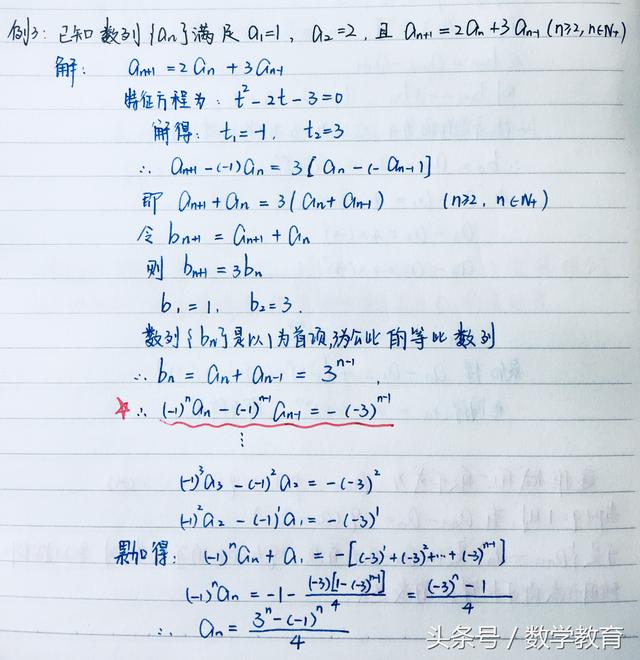 例3：已知数列{an}满足 a₁=1，a₂=2，且 aₙ₊₁=2aₙ+3aₙ₋₁ (n≥2, n∈N₊)
解： aₙ₊₁=2aₙ+3aₙ₋₁
特征方程为：t²-2t-3=0
解得：t₁=-1，t₂=3
∴ aₙ₊₁-(-1)aₙ=3[aₙ-(-aₙ₋₁)]
即 aₙ₊₁+aₙ=3(aₙ+aₙ₋₁) (n≥2, n∈N₊)
令 bₙ₊₁=aₙ₊₁+aₙ
则 bₙ₊₁=3bₙ
b₁=1，b₂=3.
数列{bₙ}是以1为首项,3为公比的等比数列
∴ bₙ=aₙ+aₙ₋₁=3ⁿ⁻¹,
☆∴ (-1)ⁿaₙ-(-1)ⁿ⁻¹aₙ₋₁=-(-3)ⁿ⁻¹
⋮
(-1)³a₃-(-1)²a₂=-(-3)²
(-1)²a₂-(-1)¹a₁=-(-3)¹
累加得：(-1)ⁿaₙ+a₁=-[(-3)¹+(-3)²+…+(-3)ⁿ⁻¹]
(-1)ⁿaₙ=-1-(-3)[1-(-3)ⁿ⁻¹]/4=((-3)ⁿ-1)/4
∴ aₙ=(3ⁿ-(-1)ⁿ)/4
头条号 / 数学教育